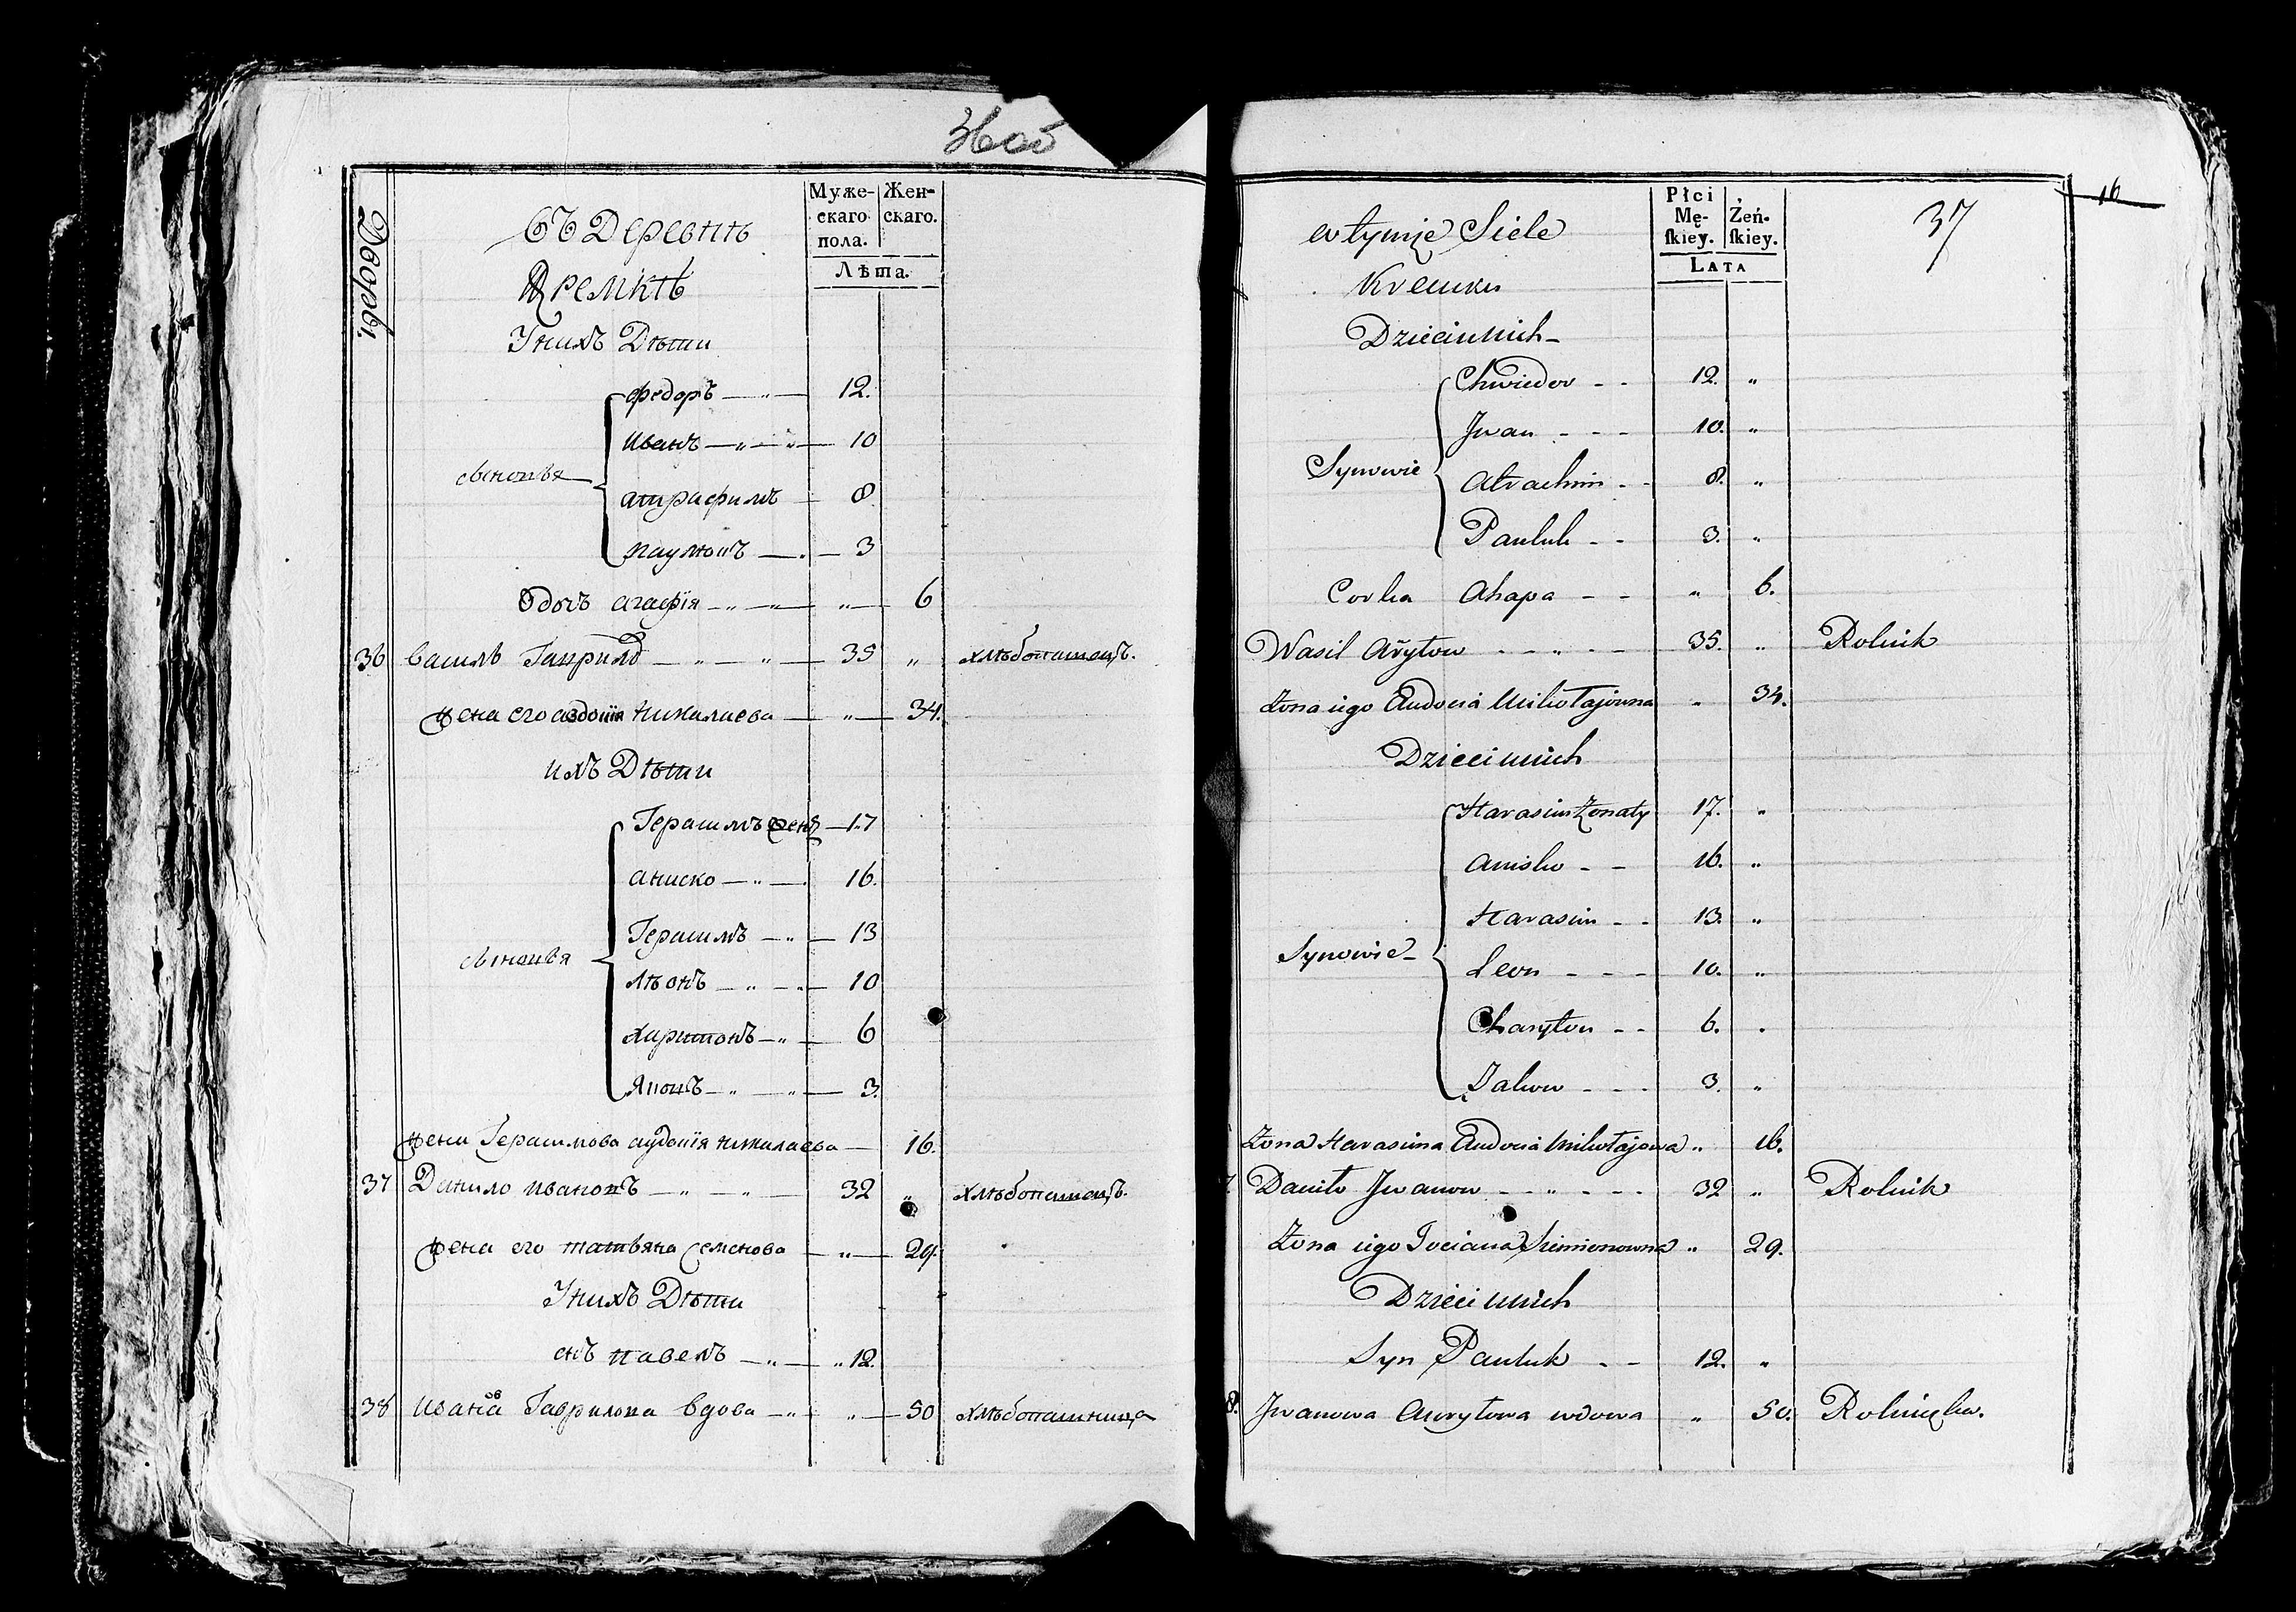 36об
Дворовъ.
въ Деревнѣ
Муже-
скаго
пола.
Жен-
скаго.
Лѣта.
Кремкѣ
У нихъ Дѣти
Федоръ — „ — 12.
Иванъ — „ — „ — 10
сыновья
атрафимъ — 8.
паулюкъ — . — 3
дочь агафія — „ — „ — „ — 6
36 Василь Гаврилов — „ — „ — 35 „ хлѣбопашецъ.
жена его авдотія николаева — „ — 34.
ихъ Дѣти
Герасимъ жен — 17
аниско — „ — 16.
Герасимъ — „ — 13
сыновья
лѣонъ — „ — „ — 10
харитонъ — „ — 6
Яковъ — „ — „ — 3.
жена Герасимова аудотія николаева — 16.
37 Данило ивановъ — „ — „ — 32 „ хлѣбопашецъ.
жена его татьяна Семенова — „ — 29.
У нихъ Дѣти
снъ павелъ — „ — „ 12.
38 иванова Гаврилова вдова — „ — „ — 50 хлѣбопашница
16
37
w tymże Siele
Płci
Mę-
ſkiey.
Żeń-
ſkiey.
LATA
Kremku
Dzieci u nich
Chwiedor - - 12. „
Jwan - - - 10. „
Synowie
Atrachim - - 8. „
Pauluk - - 3. „
Corka Ahapa - - „ 6.
Wasil Aurytow - - „ - - 35. „ Rolnik
Żona iego Eudocia Mikołajowna „ 34.
Dzieci u nich
Harasim Żonaty 17. „
Anisko - - 16. „
Harasim - - 13. „
Synowie
Leon - - - 10. „
Charyton - - 6. .
Jakow - - - 3. „
Żona Harasima Eudocia Mikołajowa „ 16.
7. Daniło Jwanow - - „ - - - 32 „ Rolnik
Żona iego Tociana Siemionowna „ 29.
Dzieci u nich
Syn Pauluk - - 12. „
8. Jwanowa Awrytowa wdowa „ 50. Rolniczka.